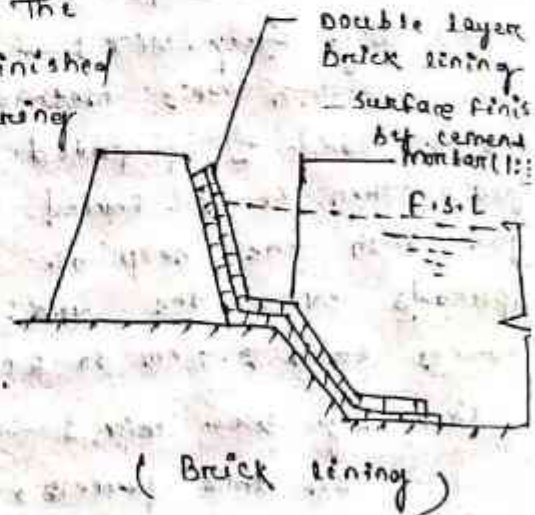 The
inished
ring
Double layer
Brick lining
surface finis
by cement
mortar (1:
F.S.L
( Brick lining )